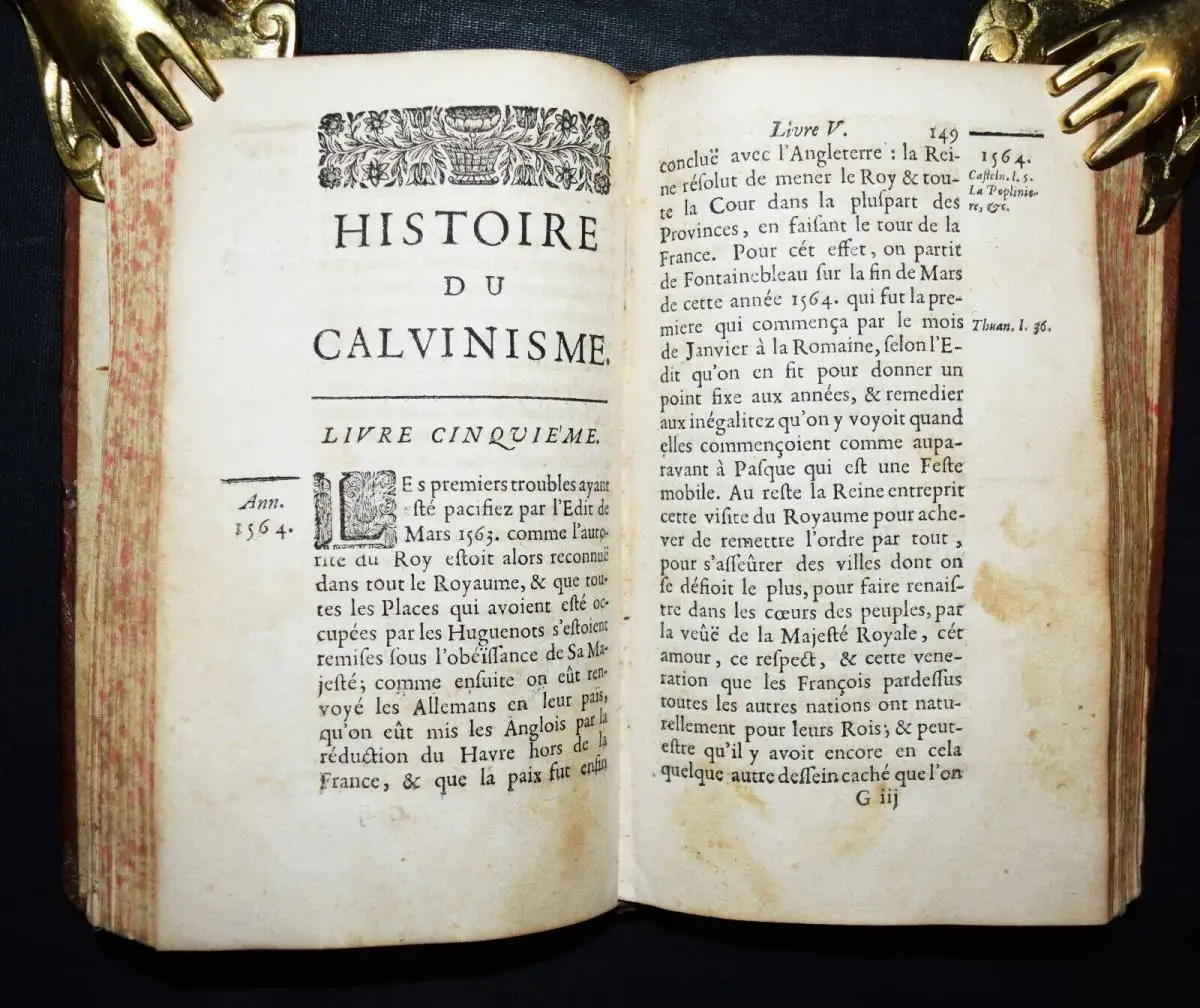 HISTOIRE
DU
CALVINISME.
LIVRE CINQVIE'ME.
Ann.
1564.
LEs premiers troubles ayant
esté pacifiez par l'Edit de
Mars 1563. comme l'auto-
rité du Roy estoit alors reconnuë
dans tout le Royaume, & que tou-
tes les Places qui avoient esté oc-
cupées par les Huguenots s'estoient
remises sous l'obéïssance de Sa Ma-
jesté; comme ensuite on eût ren-
voyé les Allemans en leur païs,
qu'on eût mis les Anglois par la
réduction du Havre hors de la
France, & que la paix fut enfin
Livre V. 149
concluë avec l'Angleterre : la Rei-
ne résolut de mener le Roy & tou-
te la Cour dans la pluspart des
Provinces, en faisant le tour de la
France. Pour cét effet, on partit
de Fontainebleau sur la fin de Mars
de cette année 1564. qui fut la pre-
miere qui commença par le mois
de Janvier à la Romaine, selon l'E-
dit qu'on en fit pour donner un
point fixe aux années, & remedier
aux inégalitez qu'on y voyoit quand
elles commençoient comme aupa-
ravant à Pasque qui est une Feste
mobile. Au reste la Reine entreprit
cette visite du Royaume pour ache-
ver de remettre l'ordre par tout,
pour s'asseûrer des villes dont on
se défioit le plus, pour faire renais-
tre dans les cœurs des peuples, par
la veûë de la Majesté Royale, cét
amour, ce respect, & cette vene-
ration que les François pardessus
toutes les autres nations ont natu-
rellement pour leurs Rois; & peut-
estre qu'il y avoit encore en cela
quelque autre dessein caché que l'on
G iij
1564.
Casteln. l. 5.
La Poplinie-
re, &c.
Thuan. l. 36.